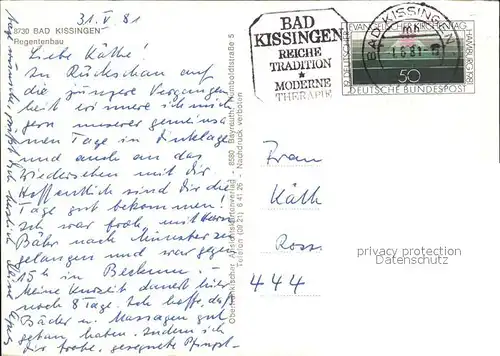 31. V. 81
8730 BAD KISSINGEN
Regentenbau
Liebe Käthe!
In Rückschau auf
die jüngere Vergangen-
heit erinnere ich mich
gern unserer gemeinsa-
men Tage in Dinklage
und auch an das
Wiedersehen mit dir
Hoffentlich sind dir die
Tage gut bekommen!
Ich war froh, mit Herrn
Bähr nach Münster zu
gelangen und war gegen
15 h in Beckum. -
Meine Kurzeit dauert hier
noch 8 Tage. Ich hoffe, daß
Bäder u. Massagen gut
getan haben. Indem ich
dir frohe, gesegnete Pfingst-
grüßt dich herzlich deine
Oberfränkischer Ansichtskartenverlag - 8580 Bayreuth, Humboldtstraße 5
Telefon (09 21) 6 41 26 - Nachdruck verboten
BAD
KISSINGEN
REICHE
TRADITION
★
MODERNE
THERAPIE
BAD KISSINGEN
1.6.81
19. DEUTSCHER EVANGELISCHER KIRCHENTAG HAMBURG 1981
50
DEUTSCHE BUNDESPOST
Frau
Käth
Ross
444
privacy protection
Datenschutz